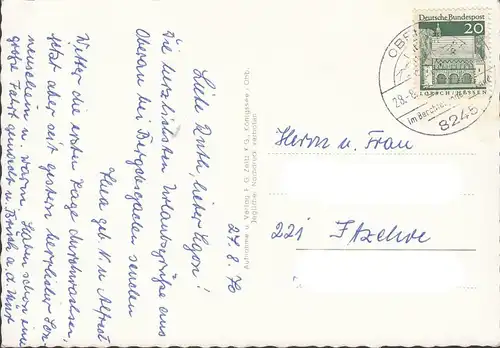 27.8.70
Liebe Ruth, lieber Egon!
Die herzlichsten Urlaubsgrüße aus
Oberau bei Berchtesgaden senden
Hera geb. N. u. Alfred
Wetter die ersten Tage durchwachsen,
jetzt aber seit gestern herrlicher Son-
nenschein u. warm. Haben schon eine
große Fahrt gemacht n. Brück a. d.
Aufnahme u. Verlag F. G. Zeitz K G., Königssee / Obb.
Jeglicher Nachdruck verboten
Deutsche Bundespost
20
LORSCH/HESSEN
28.-8.
8245
Herrn u. Frau
221 Itzehoe